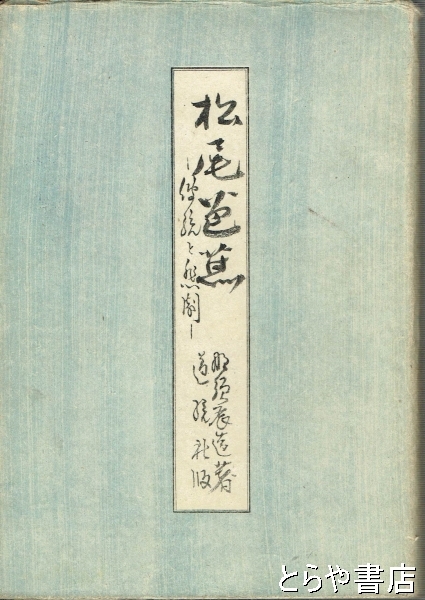 松尾芭蕉
―傳統と悲劇―
那須辰造著
道統社版
とらや書店